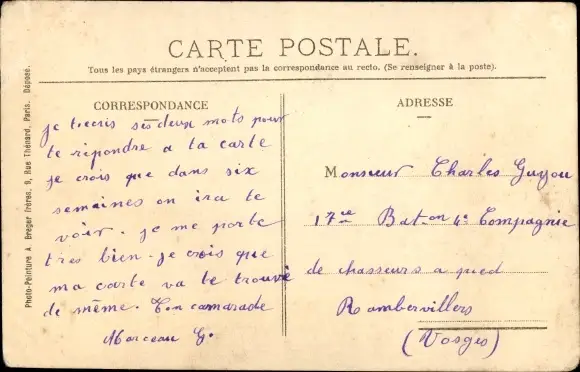 CARTE POSTALE.
Tous les pays étrangers n'acceptent pas la correspondance au recto. (Se renseigner à la poste).
CORRESPONDANCE
je t'ecris ses deux mots pour
te répondre a ta carte
je crois que dans six
semaines on ira te
voir. je me porte
tres bien. je crois que
ma carte va te trouvé
de même. Ton camarade
Marceau G.
ADRESSE
Monsieur Charles Guyou
17me Bat-on 4e Compagnie
de chasseurs a pied
Rambervillers
(Vosges)
Photo-Peinture A. Breger Frères, 9, Rue Thénard, Paris. Déposé.